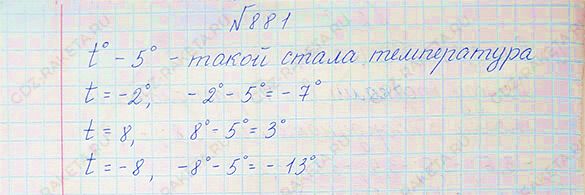 №881
t° - 5° - такой стала температура
t = -2°, -2° - 5° = -7°
t = 8, 8° - 5° = 3°
t = -8, -8° - 5° = -13°